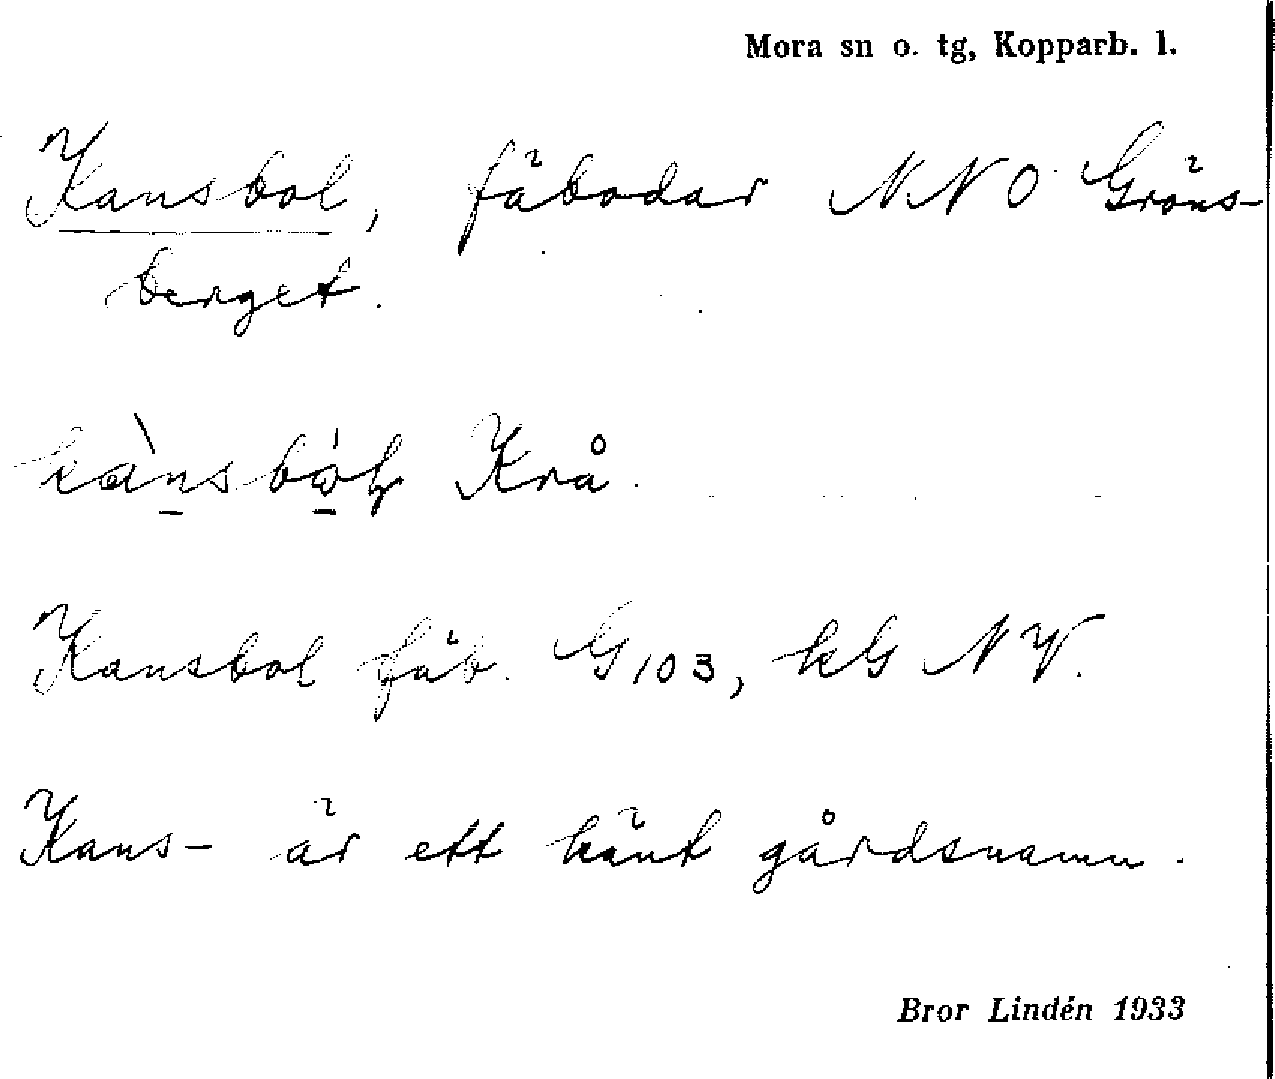 Mora sn o. tg, Kopparb. l.
Kansbol, fäbodar NNO Gröns-
berget.
Krå.
Kansbol fäb. G 103, kG NV.
Kans- är ett känt gårdsnamn.
Bror Lindén 1933